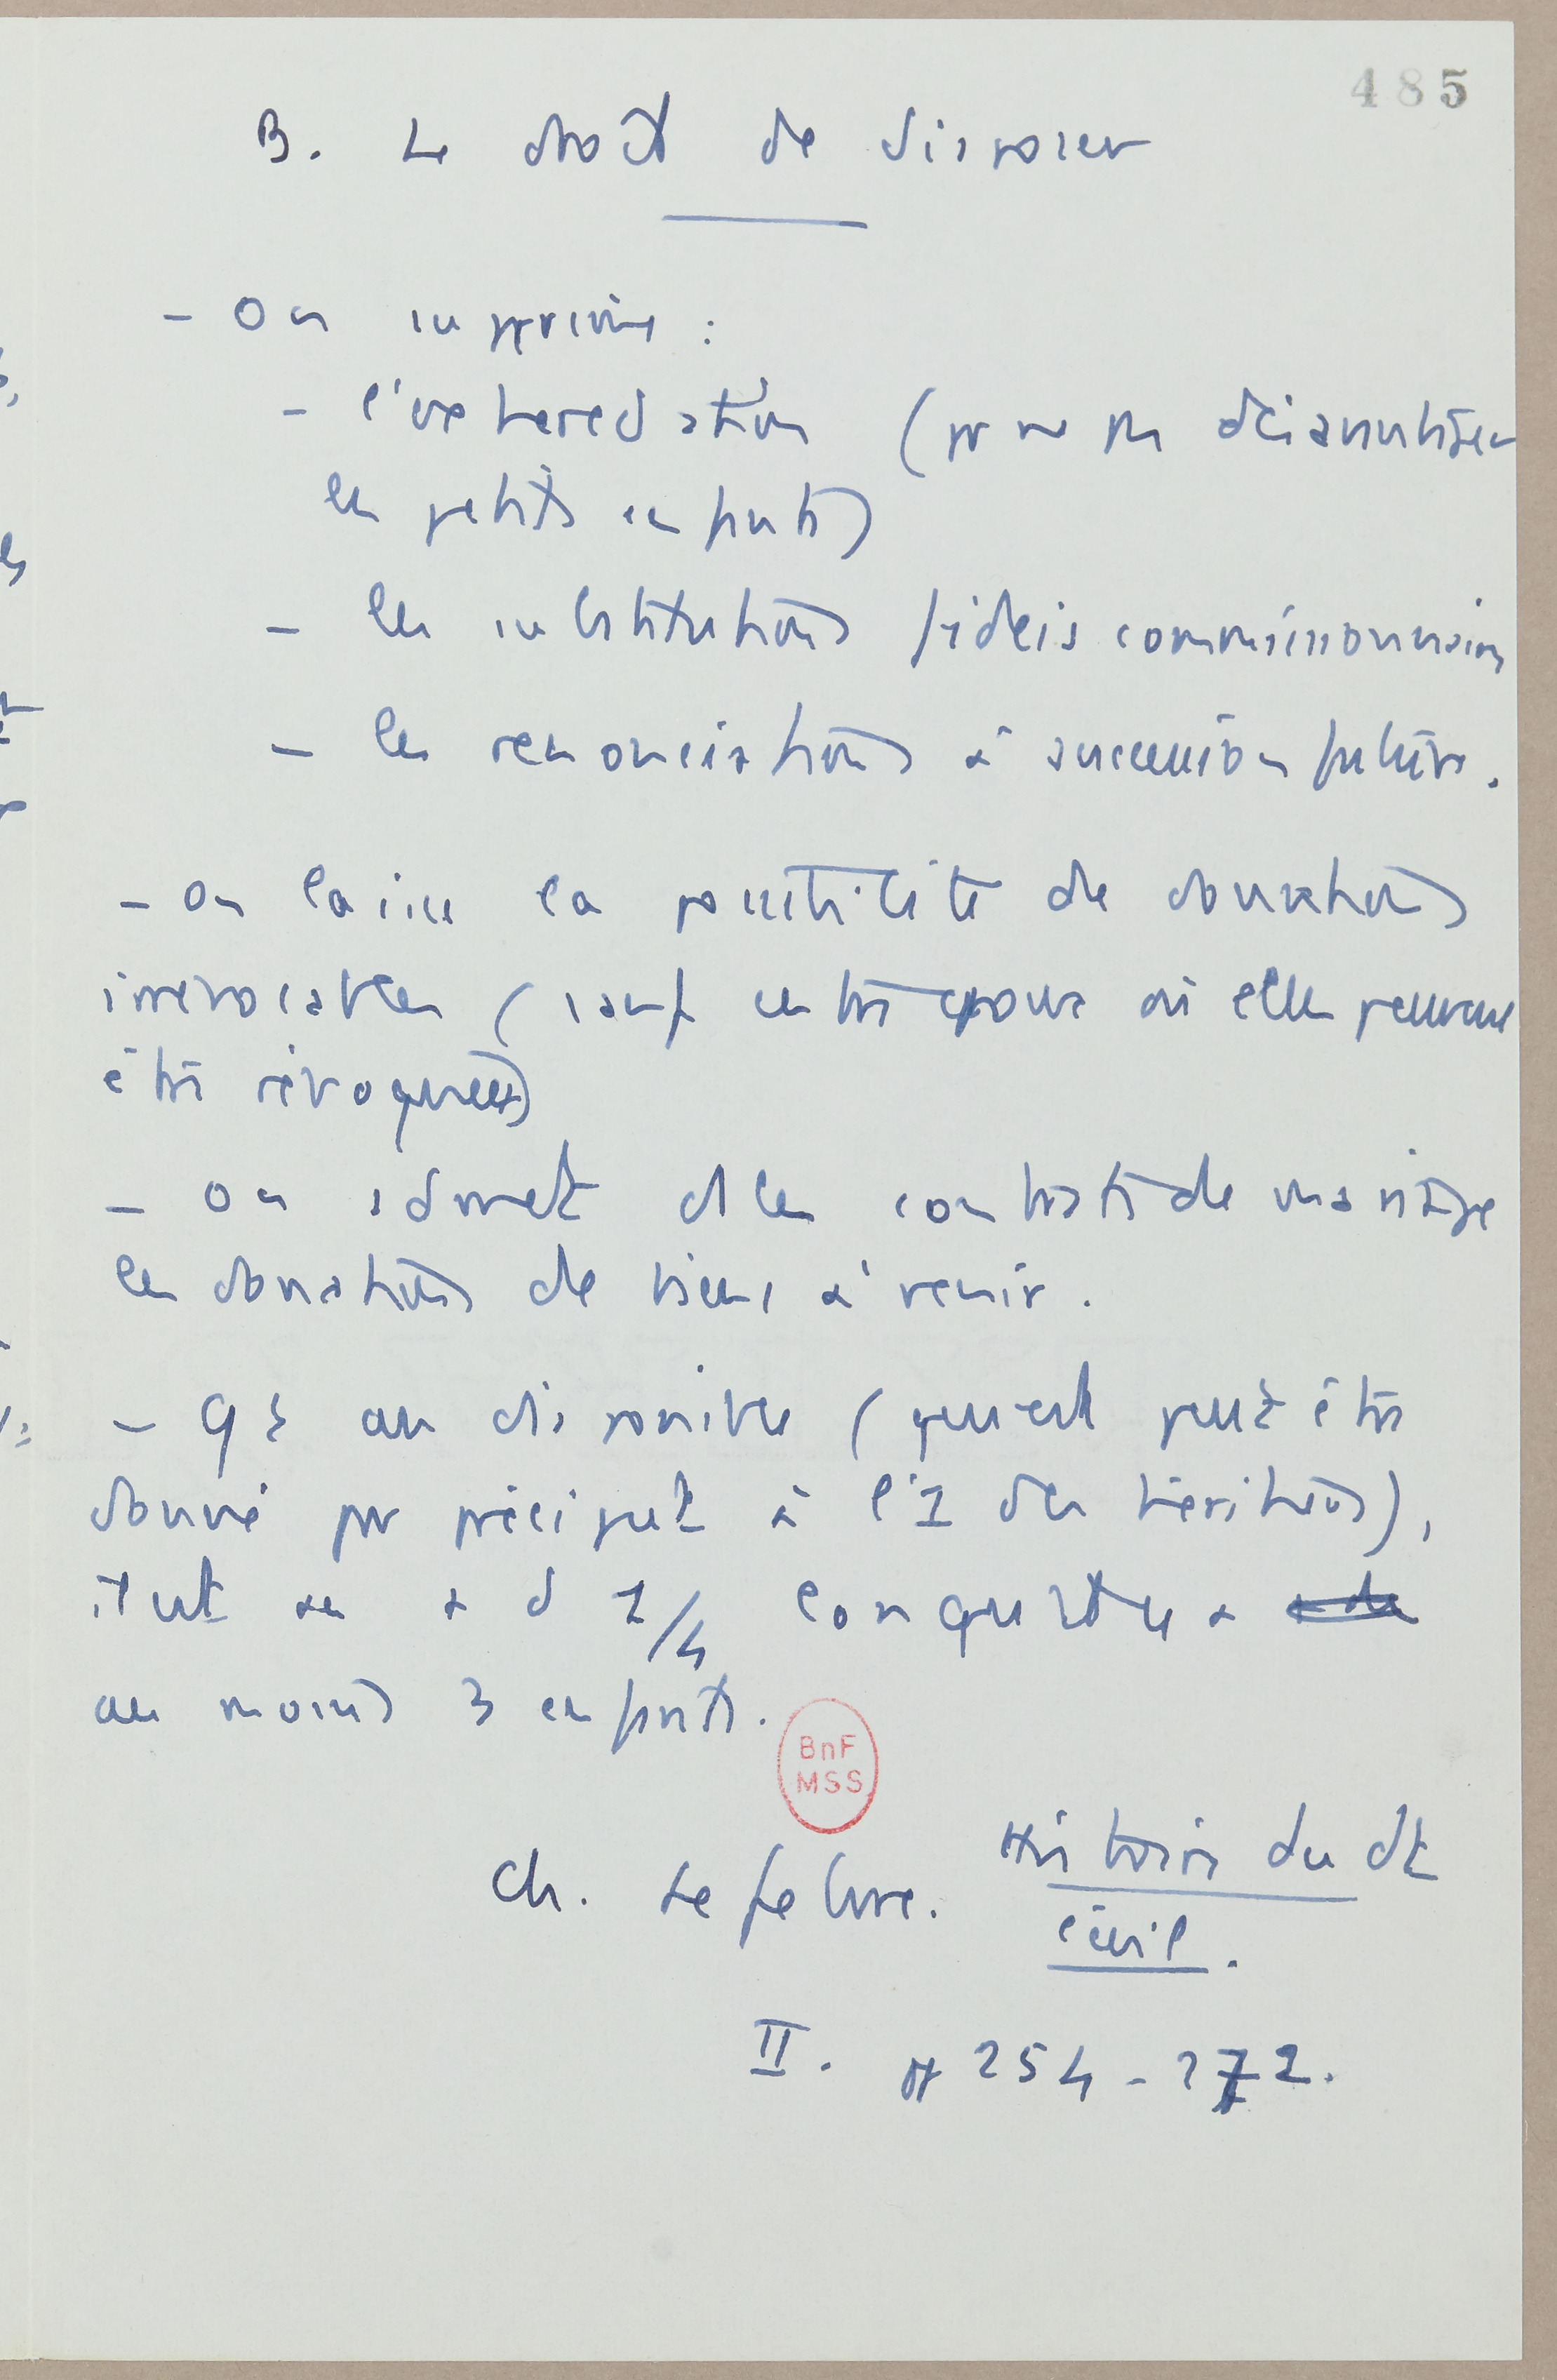 485
B. Le droit de disposer
- On supprime :
- l'exheredation (pr ne pas désavantager
les petits enfants)
- les substitutions fideis commissionnaires
- les renonciations à succession future.
- on laisse la possibilité de donations
irrevocables (sauf entre epoux où elles peuvent
être révoquées)
- on admet ds les contrats de mariage
les donations de biens à venir.
- Qt au disponible (quiest peut être
donné par préciput à l'1 des héritiers),
il est au + d 1/4 lorsqu'il y a
au moins 3 enfants.
BnF
MSS
Ch. Lefebvre. Histoire du dt
civil.
II. pp 254-272.